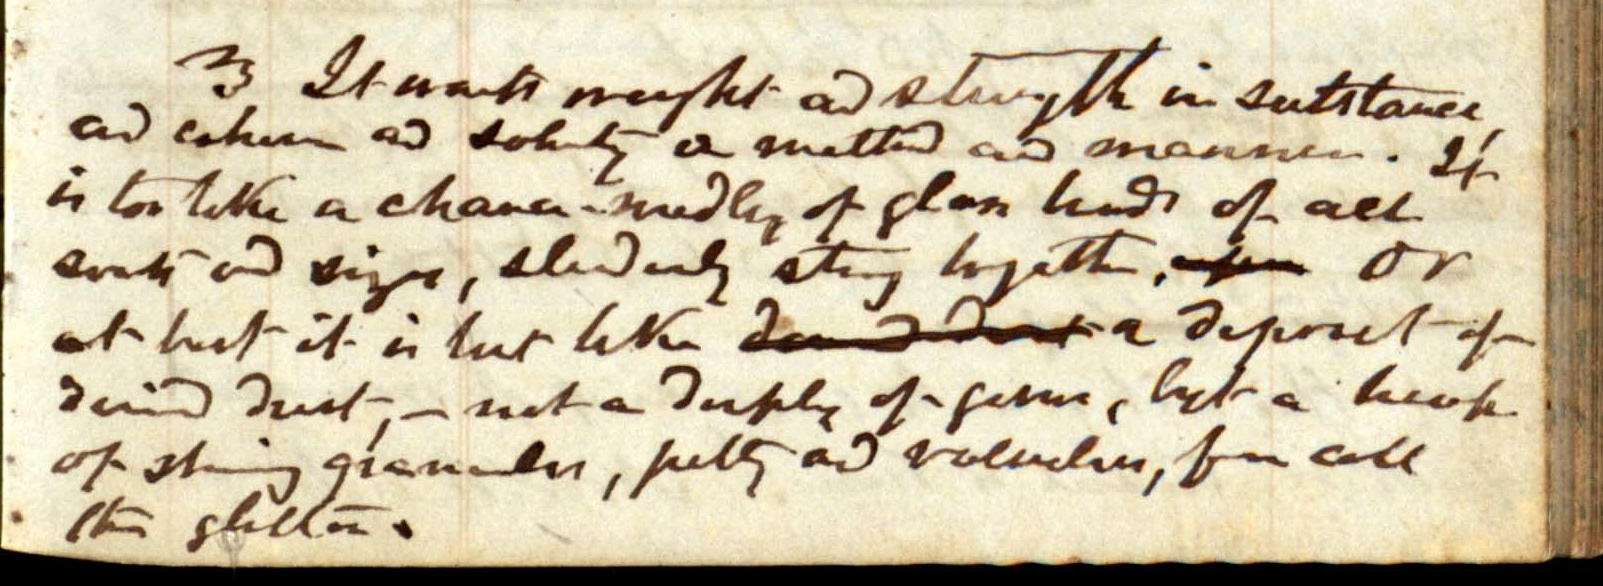 3 It wants weight and strength in substance,
and cohesion and solidity in matter and manner. It
is too like a chance-medley of glass beads of all
sorts and sizes, slenderly strung together, Or
at best it is but like a deposit of
diamond dust, – not a display of gems, but a heap
of shining granules, petty and valueless, for all
their glitter.